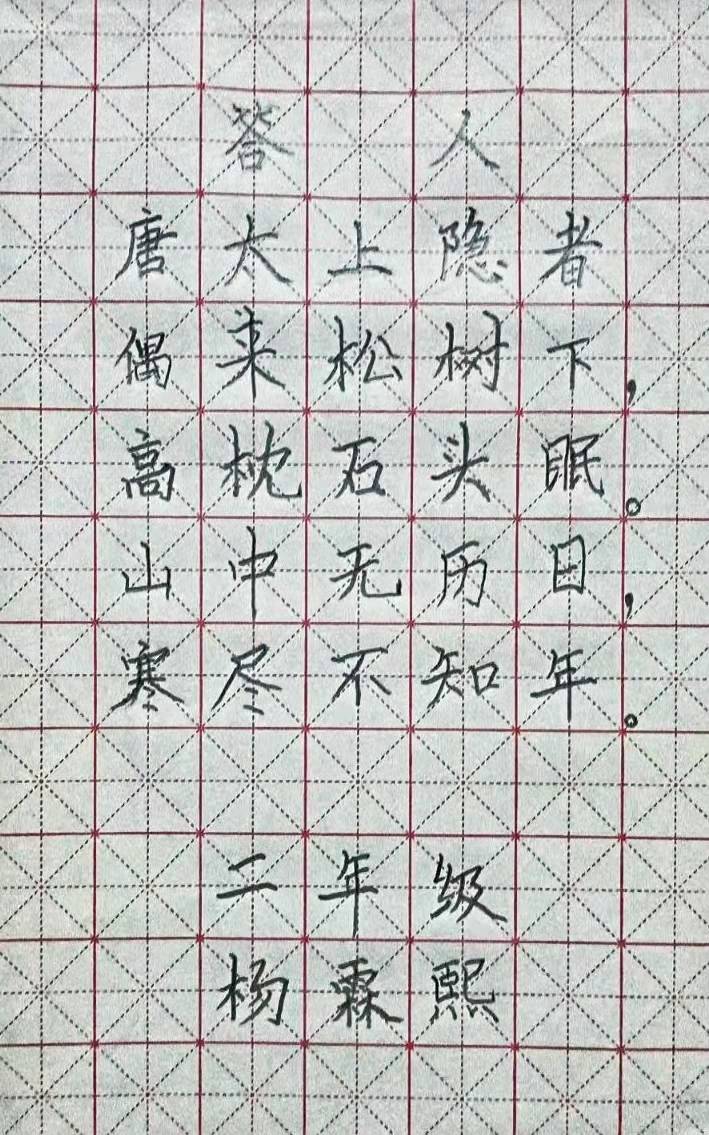 答人
唐太上隐者
偶来松树下，
高枕石头眠。
山中无历日，
寒尽不知年。
二年级
杨霖熙